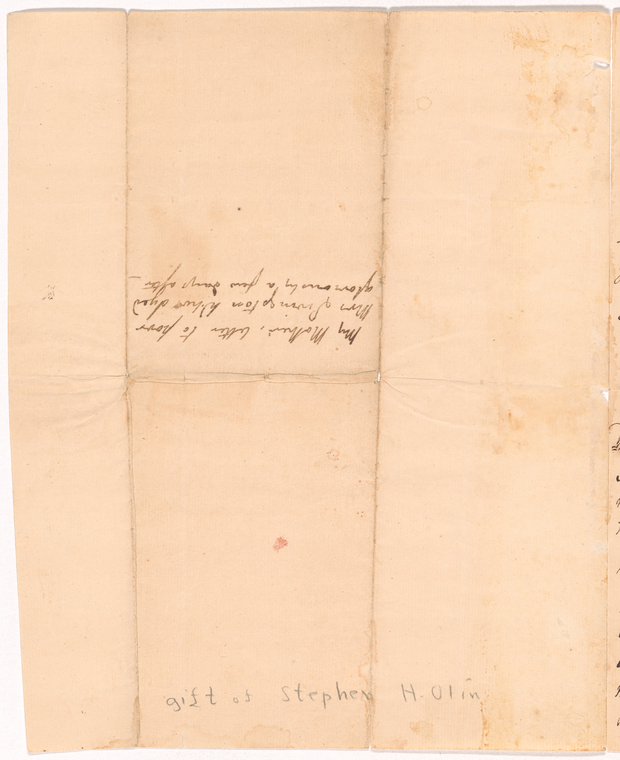 My Mother's letter to poor
Mrs Livingston Who dyed
gloriously a few days after
gift of Stephen H. Olin